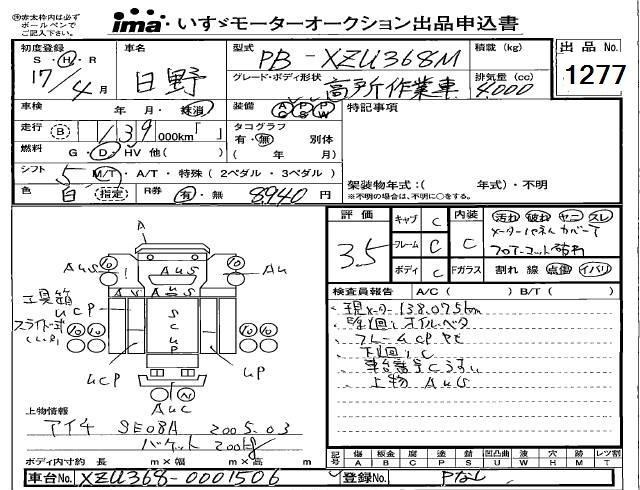 ※赤太枠内は必ず
ボールペンで
ご記入下さい。
ima いすゞモーターオークション出品申込書
初度登録 車名 型式 PB-XZU368M 積載(kg) 出品No.
S・H・R
17/4月 日野 グレード・ボディ形状 高所作業車 排気量(cc) 4,000 1277
車検 年・月・抹消 装備 AC PS PW 特記事項
走行 B 139 000km「 」 タコグラフ
有・無 別体
燃料 G・D・HV 他( ) ( 年 月)
シフト 5 M/T・A/T・特殊(2ペダル・3ペダル)
架装物年式:( 年式)・不明
色 白 (指定) R券 有・無 8940円
※不明の場合は、不明に○をする。
評価 3.5 キャブ C 内装 C 汚れ 破れ ヤニ スレ
フレーム C
ボディ C Fガラス 割れ 線 点傷 イバリ
検査員報告 A/C( ) B/T( )
現メーター138,075km
オイルベタ
下廻りC
車台番号Cうすい
上物 AuS
A
AuS AuS Au
工具箱
uCP S C u P
スライド式
uCP uP
AuC
上物情報
アイチ SE08A 2005.03
バケット 200kg
ボディ内寸約 長 m×幅 m×高 m
記号 傷 A 板金 B 腐 C 塗 P 錆 S 凹凸曲 U 波 W 穴 H 目 M レツ割 T
車台No. XZU368-0001506 登録No. Pなし